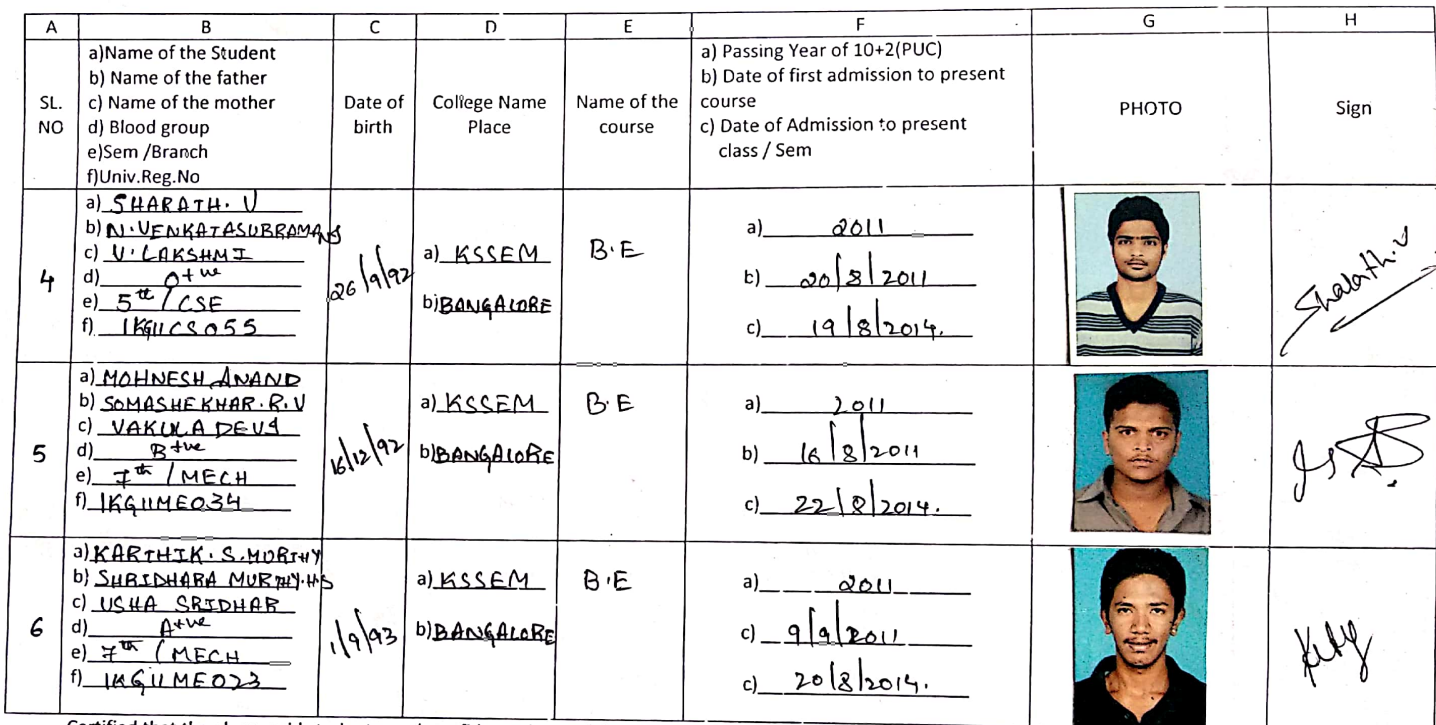 A B C D E F G H
SL. NO
a)Name of the Student
b) Name of the father
c) Name of the mother
d) Blood group
e)Sem /Branch
f)Univ.Reg.No
Date of birth
College Name Place
Name of the course
a) Passing Year of 10+2(PUC)
b) Date of first admission to present
course
c) Date of Admission to present
class / Sem
PHOTO
Sign
4
a) SHARATH. V
b) N. VENKATASUBRAMANS
c) V. LAKSHMI
d) O+ve
e) 5th / CSE
f) 1KG11CS055
26/9/92
a) KSSEM
b) BANGALORE
B.E
a) 2011
b) 20/8/2011
c) 19/8/2014.
Sharath.V
5
a) MOHNESH ANAND
b) SOMASHEKHAR. R. V
c) VAKULA DEVI
d) B+ve
e) 7th / MECH
f) 1KG11ME034
16/12/92
a) KSSEM
b) BANGALORE
B.E
a) 2011
b) 16/8/2011
c) 22/8/2014.
6
a) KARTHIK. S. MURTHY
b) SHRIDHARA MURTHY. H S
c) USHA SRIDHAR
d) A+ve
e) 7th / MECH
f) 1KG11ME023
1/9/93
a) KSSEM
b) BANGALORE
B.E
a) 2011
c) 9/9/2011
c) 20/8/2014.